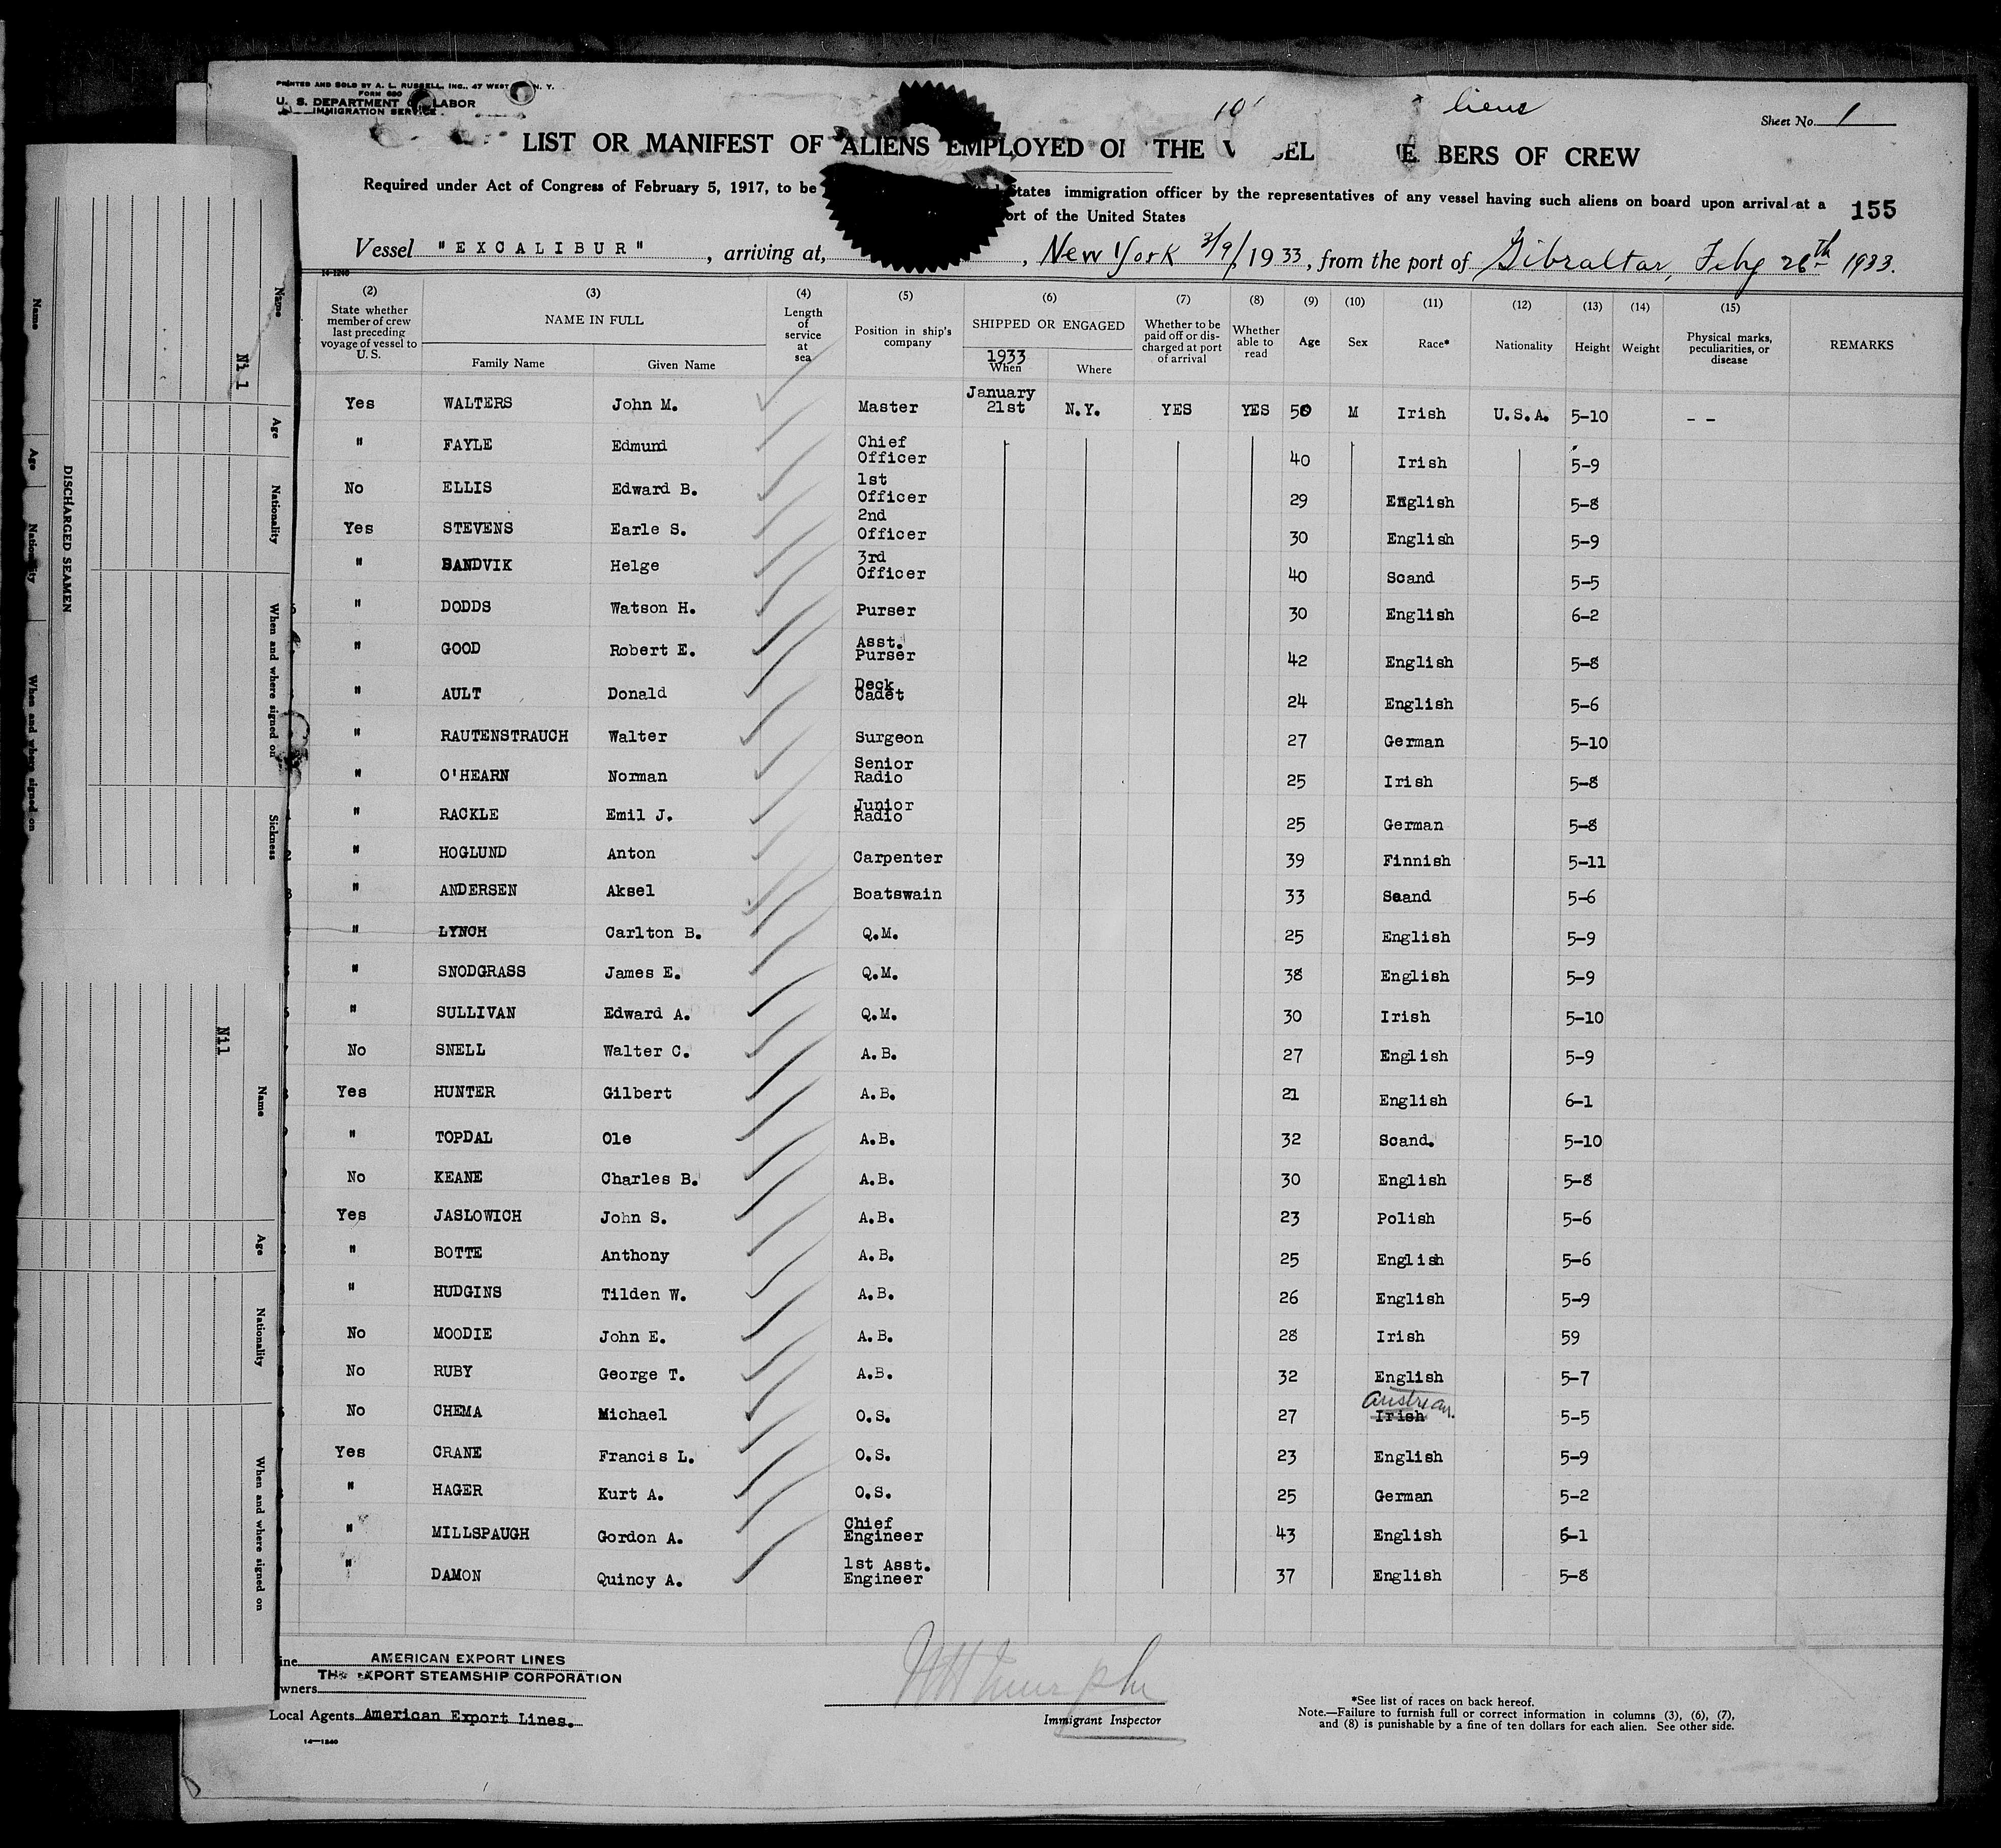 PRINTED AND SOLD BY A. L. RUSSELL, INC., 47 WEST N. Y.
FORM 680
U. S. DEPARTMENT LABOR
IMMIGRATION SERVICE
10
liens
Sheet No. 1
LIST OR MANIFEST OF ALIENS EMPLOYED THE BERS OF CREW
Required under Act of Congress of February 5, 1917, to be States immigration officer by the representatives of any vessel having such aliens on board upon arrival at a
of the United States
155
Vessel "EXCALIBUR", arriving at, New York 3/9/, 1933, from the port of Gibraltar, Feby 26th 1933.
14-1240
(2) (3) (4) (5) (6) (7) (8) (9) (10) (11) (12) (13) (14) (15)
State whether member of crew last preceding voyage of vessel to U. S.
NAME IN FULL
Family Name Given Name
Length of service at sea
Position in ship's company
SHIPPED OR ENGAGED
1933
When Where
Whether to be paid off or discharged at port of arrival
Whether able to read
Age Sex Race* Nationality Height Weight
Physical marks, peculiarities, or disease
REMARKS
Yes WALTERS John M. Master January 21st N.Y. YES YES 50 M Irish U.S.A. 5-10 - -
" FAYLE Edmund Chief Officer 40 Irish 5-9
No ELLIS Edward B. 1st Officer 29 English 5-8
Yes STEVENS Earle S. 2nd Officer 30 English 5-9
" SANDVIK Helge 3rd Officer 40 Scand 5-5
" DODDS Watson H. Purser 30 English 6-2
" GOOD Robert E. Asst. Purser 42 English 5-8
" AULT Donald Deck Cadet 24 English 5-6
" RAUTENSTRAUCH Walter Surgeon 27 German 5-10
" O'HEARN Norman Senior Radio 25 Irish 5-8
" RACKLE Emil J. Junior Radio 25 German 5-8
" HOGLUND Anton Carpenter 39 Finnish 5-11
" ANDERSEN Aksel Boatswain 33 Scand 5-6
" LYNCH Carlton B. Q.M. 25 English 5-9
" SNODGRASS James E. Q.M. 38 English 5-9
" SULLIVAN Edward A. Q.M. 30 Irish 5-10
No SNELL Walter C. A.B. 27 English 5-9
Yes HUNTER Gilbert A.B. 21 English 6-1
" TOPDAL Ole A.B. 32 Scand. 5-10
No KEANE Charles B. A.B. 30 English 5-8
Yes JASLOWICH John S. A.B. 23 Polish 5-6
" BOTTE Anthony A.B. 25 English 5-6
" HUDGINS Tilden W. A.B. 26 English 5-9
No MOODIE John E. A.B. 28 Irish 59
No RUBY George T. A.B. 32 English 5-7
No CHEMA Michael O.S. 27 Irish Austrian. 5-5
Yes CRANE Francis L. O.S. 23 English 5-9
" HAGER Kurt A. O.S. 25 German 5-2
" MILLSPAUGH Gordon A. Chief Engineer 43 English 6-1
" DAMON Quincy A. 1st Asst. Engineer 37 English 5-8
AMERICAN EXPORT LINES
EXPORT STEAMSHIP CORPORATION
Local Agents American Export Lines.
14-1240
Immigrant Inspector
*See list of races on back hereof.
Note.—Failure to furnish full or correct information in columns (3), (6), (7),
and (8) is punishable by a fine of ten dollars for each alien. See other side.
DISCHARGED SEAMEN
Name
Age
Nationality
When and where signed on
Name
Age
Nationality
When and where signed on
Sickness
Nil
Name
Age
Nationality
When and where signed on
Nil